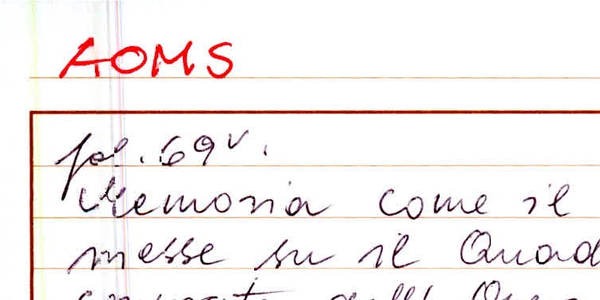 AOMS
fol. 69v.
Memoria come il
messe su il Quad